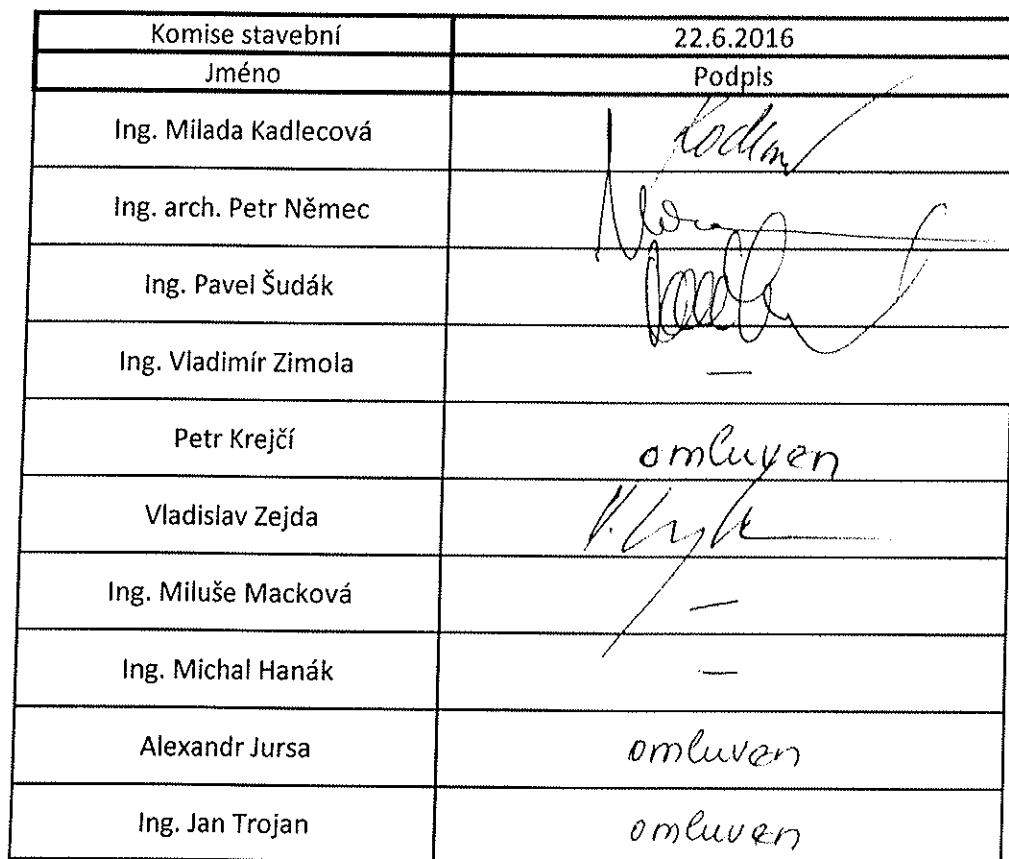 Komise stavební 22.6.2016
Jméno Podpis
Ing. Milada Kadlecová
Ing. arch. Petr Němec
Ing. Pavel Šudák
Ing. Vladimír Zimola —
Petr Krejčí omluven
Vladislav Zejda
Ing. Miluše Macková —
Ing. Michal Hanák —
Alexandr Jursa omluven
Ing. Jan Trojan omluven